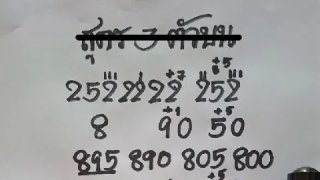 สูตร 3 ตัวบน
252 22 22 252
8 90 50
895 890 805 800